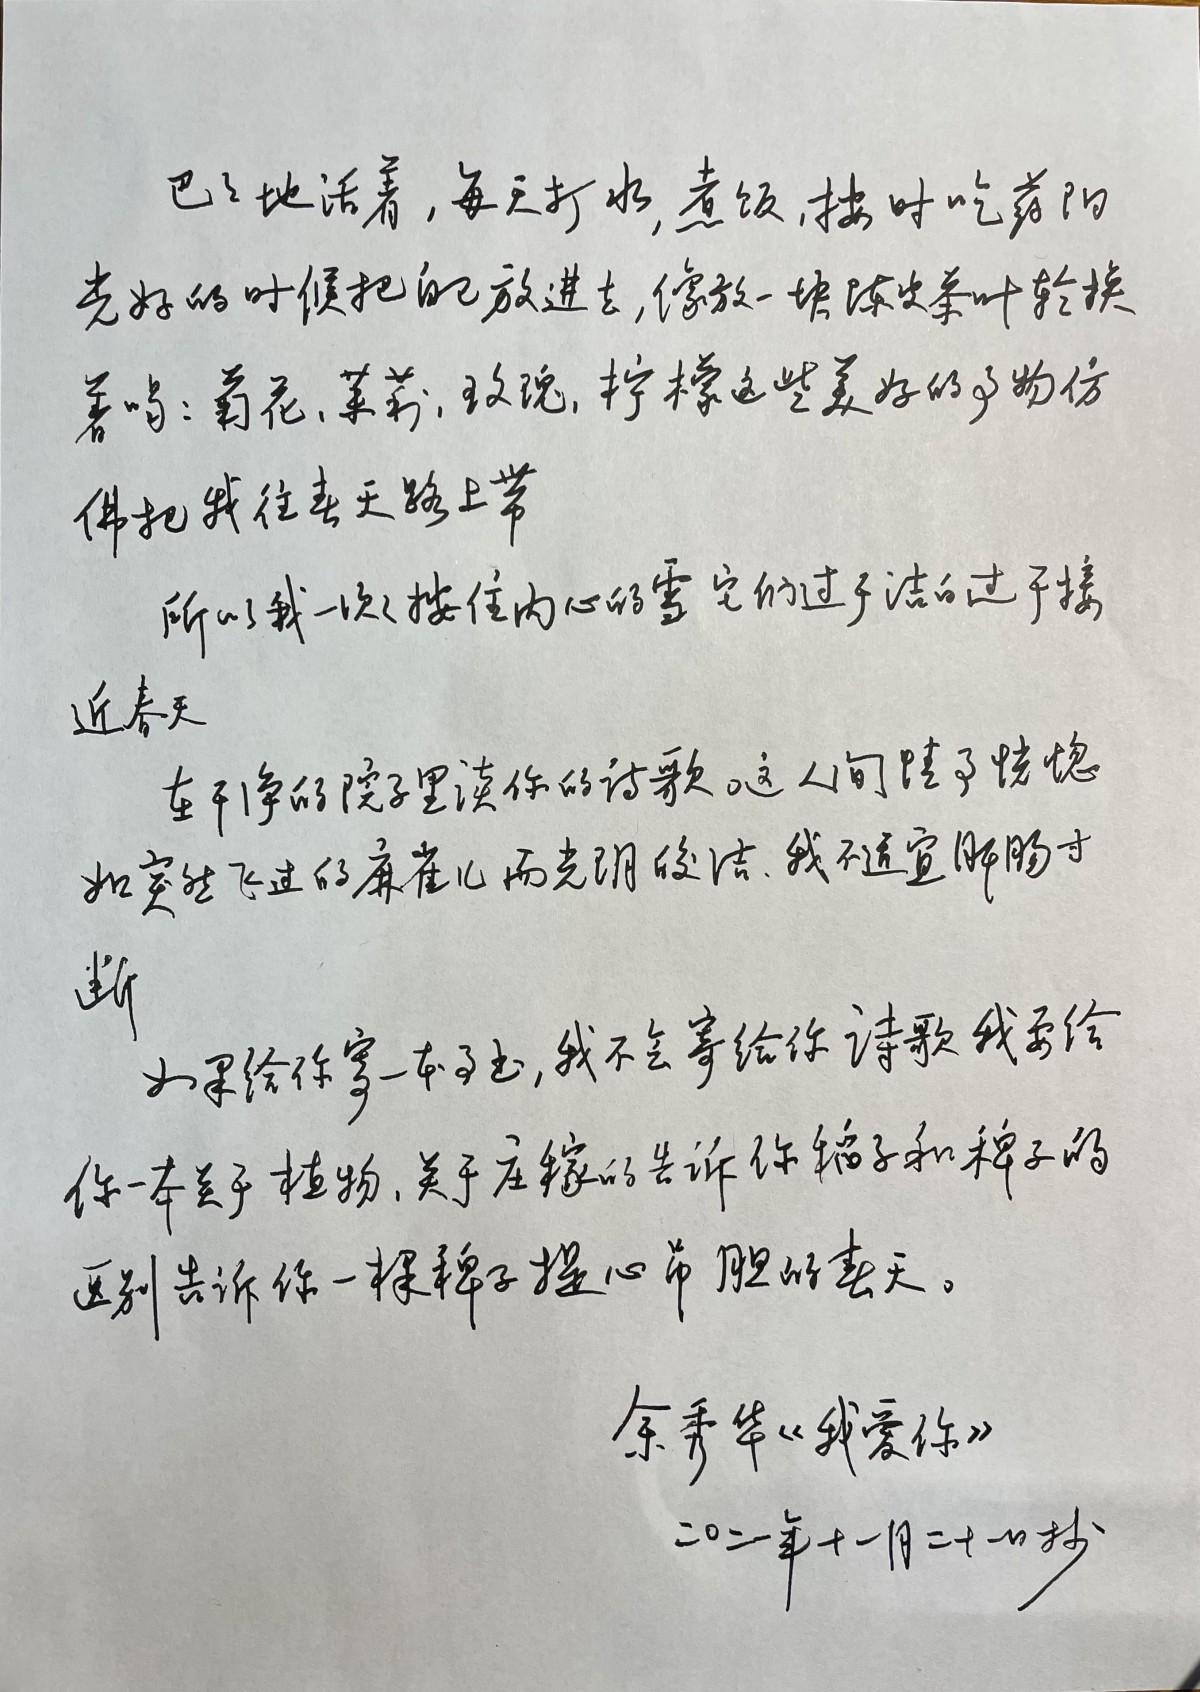 巴巴地活着，每天打水，煮饭，按时吃药阳
光好的时候把自己放进去，像放一块陈皮茶叶轮换
着喝：菊花、茉莉，玫瑰，柠檬这些美好的事物仿
佛把我往春天路上带
所以我一次次按住内心的雪它们过于洁白过于接
近春天
在干净的院子里读你的诗歌。这人间情事恍惚
如突然飞过的麻雀儿而光阴皎洁、我不适宜肝肠寸
断
如果给你寄一本书，我不会寄给你诗歌我要给
你一本关于植物、关于庄稼的告诉你稻子和稗子的
区别告诉你一棵稗子提心吊胆的春天。
余秀华《我爱你》
二〇二一年十一月二十一日抄